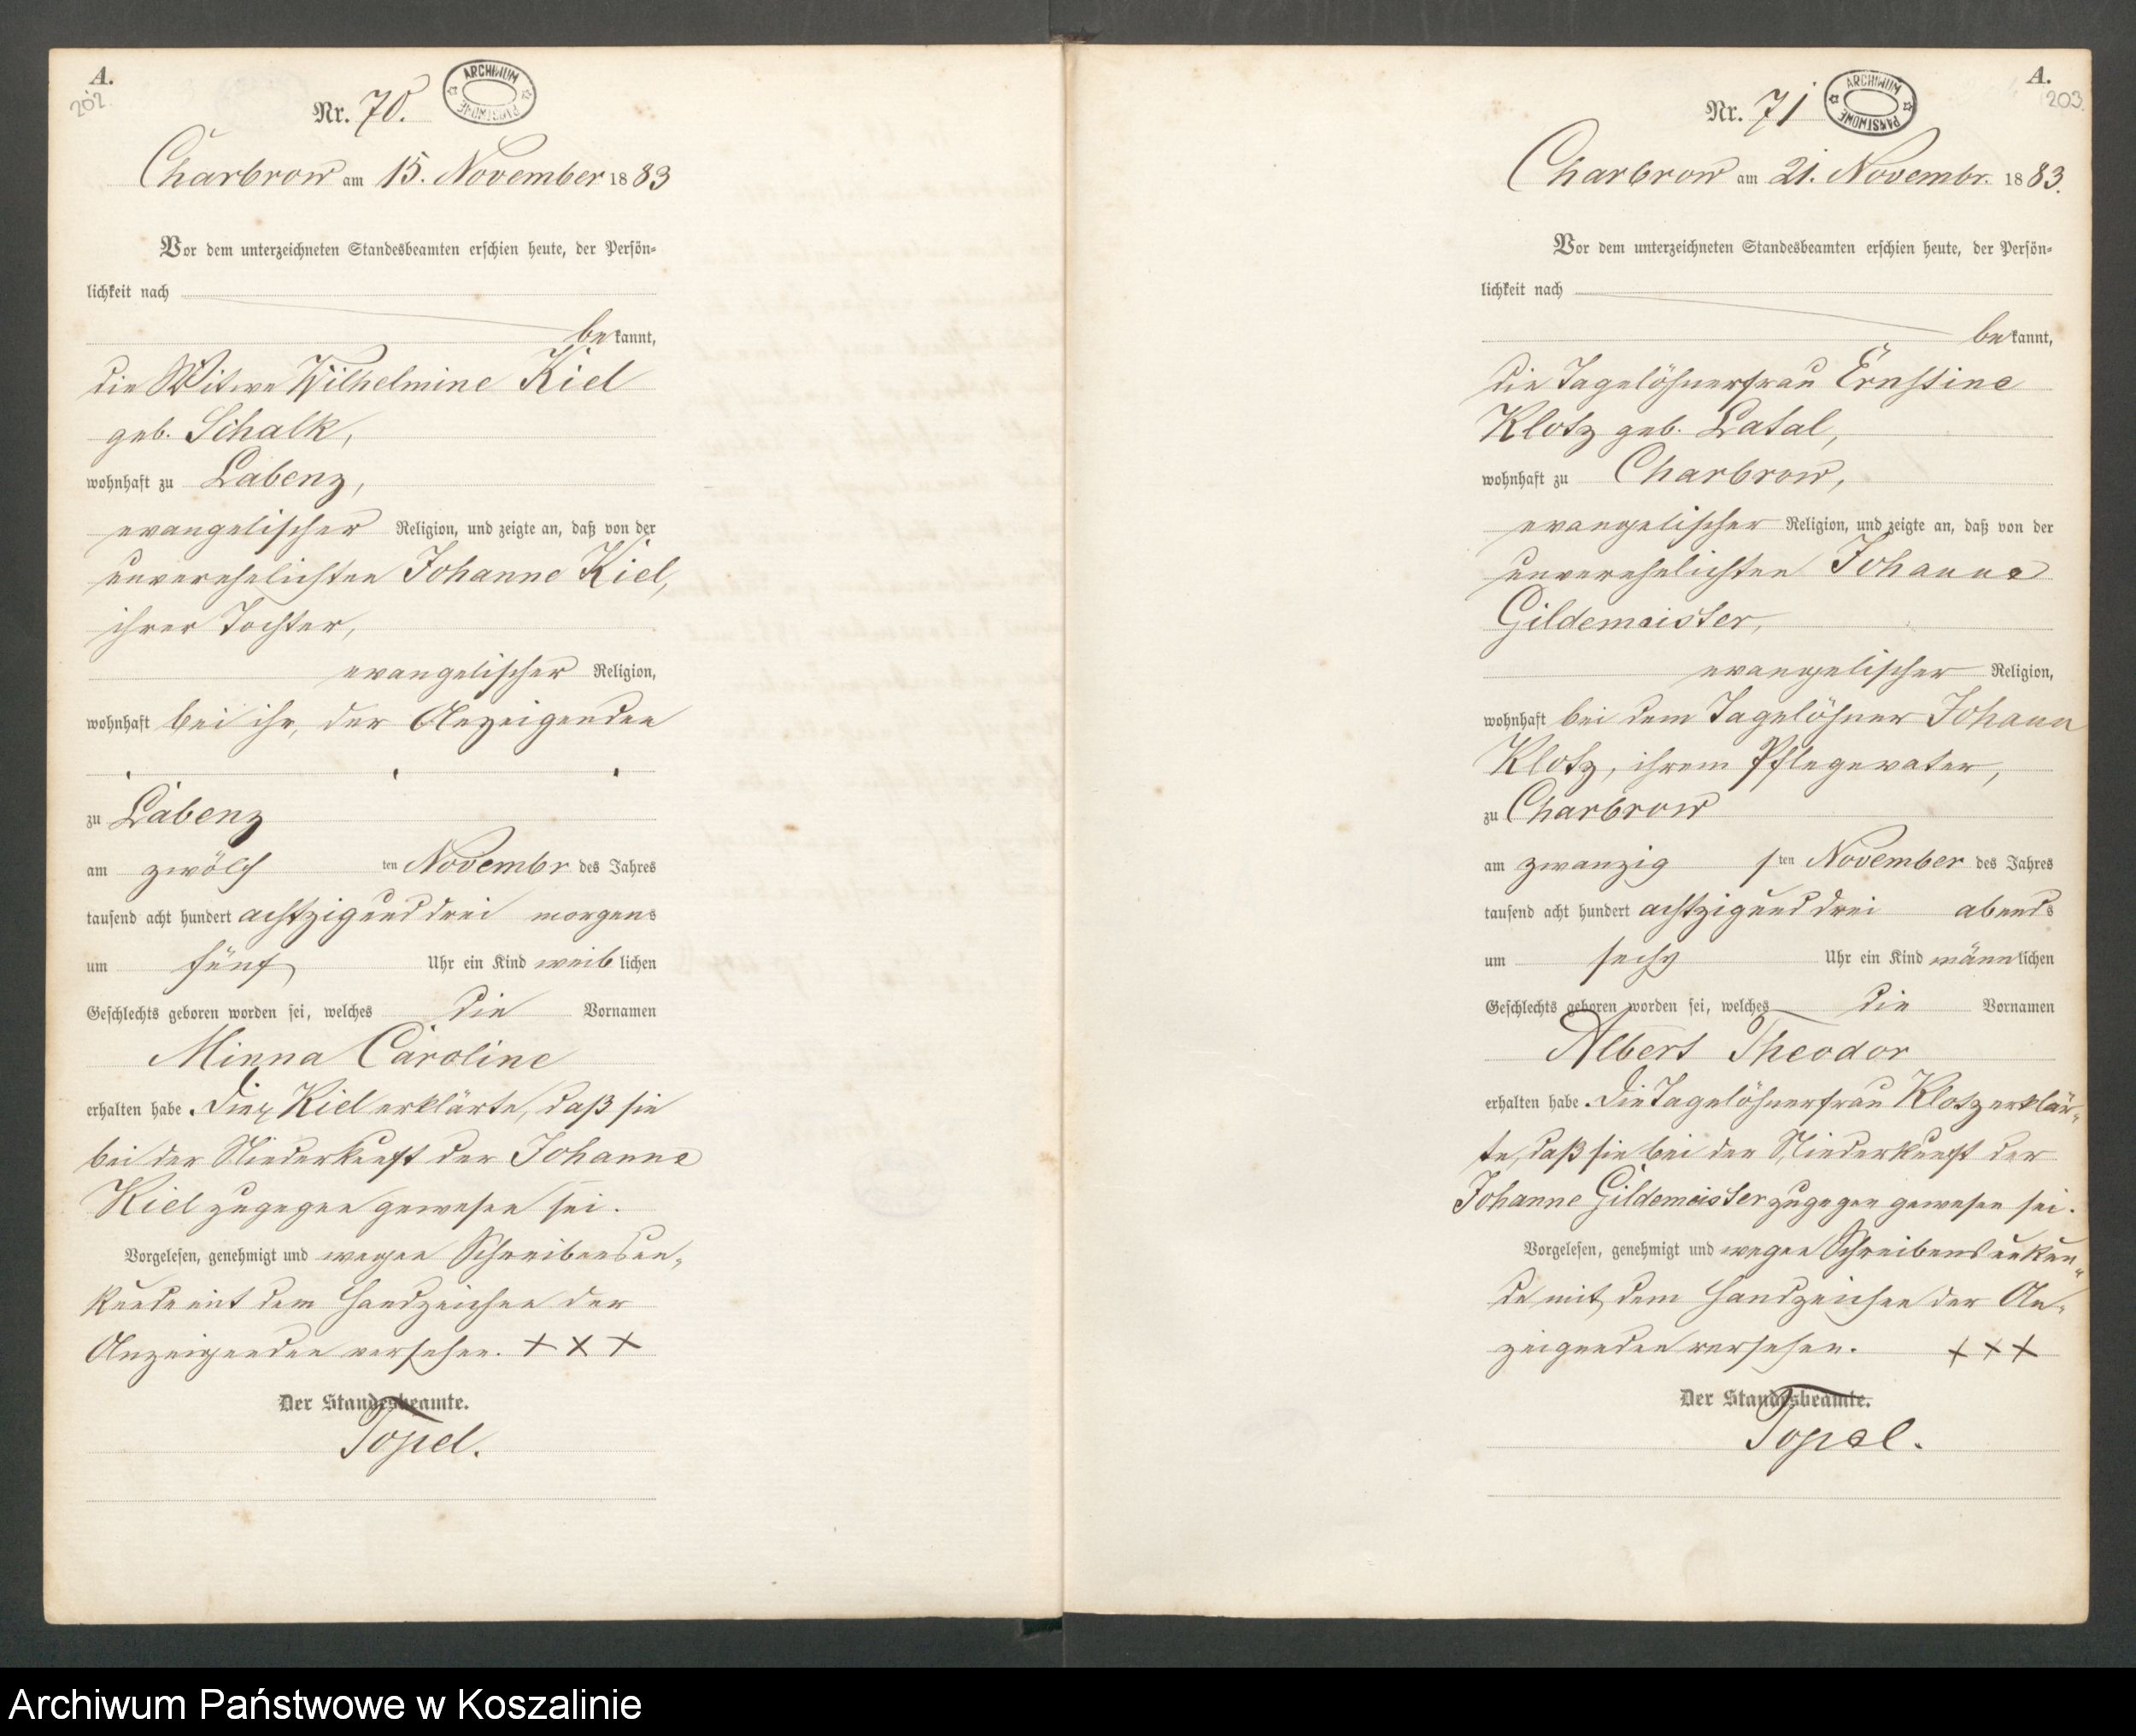 A.
202.
Nr. 70.
ARCHIWUM PAŃSTWOWE
Charbrow am 15. November 1883
Vor dem unterzeichneten Standesbeamten erschien heute, der Persön-
lichkeit nach
bekannt,
die Witwe Wilhelmine Kiel
geb. Schalk,
wohnhaft zu Labenz,
evangelischer Religion, und zeigte an, daß von der
unverehelichten Johanne Kiel,
ihrer Tochter,
evangelischer Religion,
wohnhaft bei ihr, der Anzeigenden
zu Labenz
am zwölf ten Novembr des Jahres
tausend acht hundert achtzig und drei morgens
um fünf Uhr ein Kind weiblichen
Geschlechts geboren worden sei, welches die Vornamen
Minna Caroline
erhalten habe. Die Kiel erklärte, daß sie
bei der Niederkunft der Johanne
Kiel zugegen gewesen sei.
Vorgelesen, genehmigt und wegen Schreibensun-
kunde mit dem Handzeichen der
Anzeigenden versehen. + + +
Der Standesbeamte.
Topel.
A.
203.
Nr. 71
ARCHIWUM PAŃSTWOWE
Charbrow am 21. Novembr. 1883.
Vor dem unterzeichneten Standesbeamten erschien heute, der Persön-
lichkeit nach
bekannt,
die Tagelöhnerfrau Ernstine
Klotz geb. Latal,
wohnhaft zu Charbrow,
evangelischer Religion, und zeigte an, daß von der
unverehelichten Johanne
Gildemeister,
evangelischer Religion,
wohnhaft bei dem Tagelöhner Johann
Klotz, ihrem Pflegevater,
zu Charbrow
am zwanzig sten November des Jahres
tausend acht hundert achtzig und drei abends
um sechs Uhr ein Kind männlichen
Geschlechts geboren worden sei, welches die Vornamen
Albert Theodor
erhalten habe. Die Tagelöhnerfrau Klotz erklär-
te, daß sie bei der Niederkunft der
Johanne Gildemeister zugegen gewesen sei.
Vorgelesen, genehmigt und wegen Schreibensunkun-
de mit dem Handzeichen der An-
zeigenden versehen. + + +
Der Standesbeamte.
Topel.
Archiwum Państwowe w Koszalinie